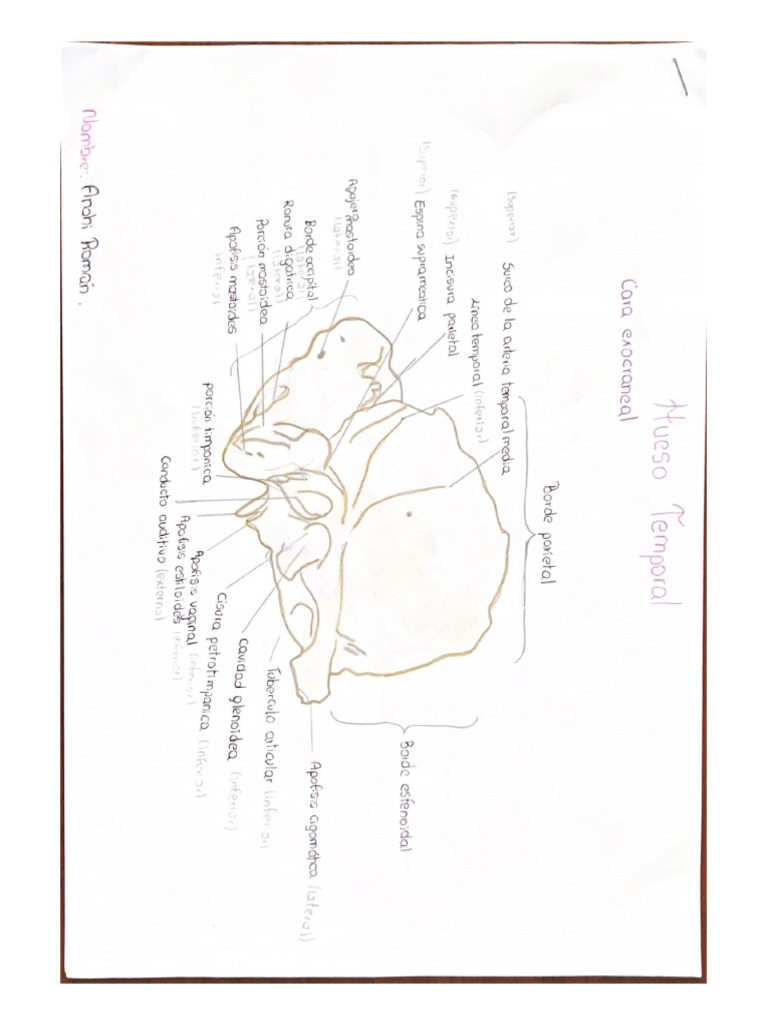 Hueso Temporal
Cara exocraneal
Borde parietal
(superior) Surco de la arteria temporal media
Linea temporal (inferior)
(superior) Incisura parietal
(superior) Espina suprameatica
Agujero mastoideo
(lateral)
Borde occipital
(lateral)
Ranura digatrica
(lateral)
Porción mastoidea
(lateral)
Apofisis mastoides
inferior
Borde esfenoidal
Apofisis cigomática (lateral)
Tuberculo articular (inferior)
Cavidad glenoidea (inferior)
Cisura petrotimpanica (inferior)
Apofisis vaginal (inferior)
Apofisis estiloides (inferior)
Conducto auditivo (externo)
porción timpanica
(inferior)
Nombre: Anahi Román.